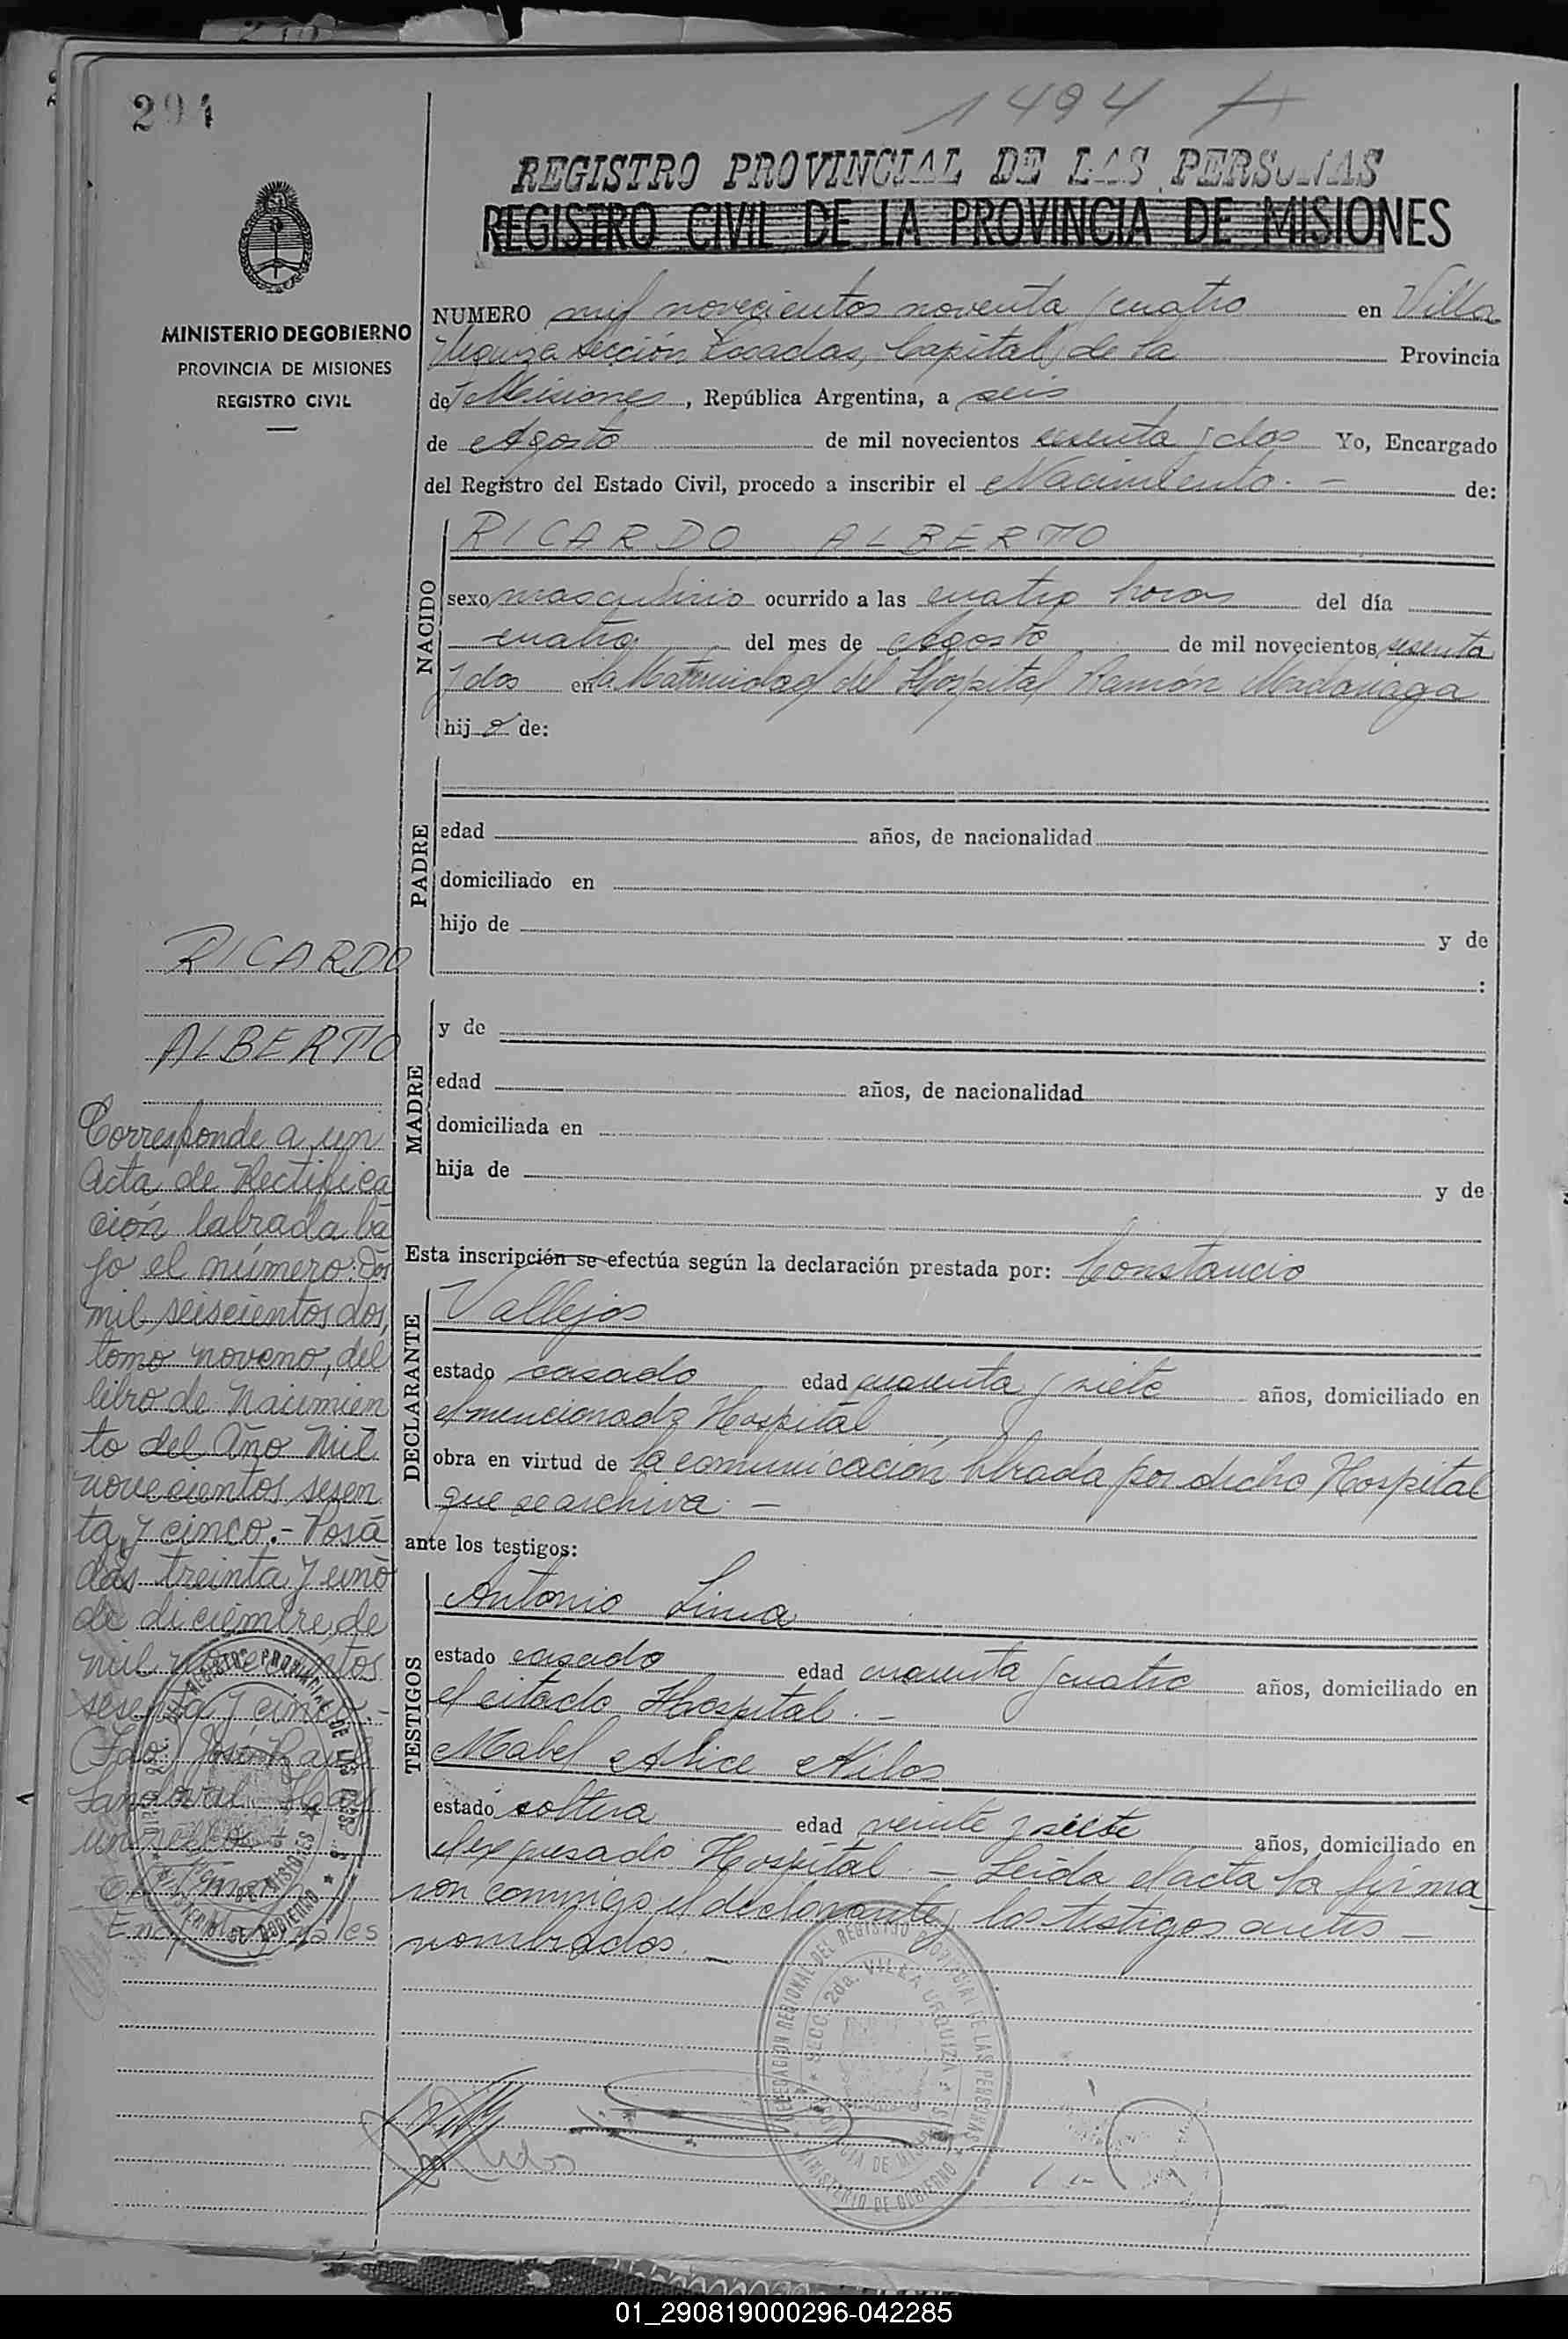 294
1494
REGISTRO PROVINCIAL DE LAS PERSONAS
REGISTRO CIVIL DE LA PROVINCIA DE MISIONES
MINISTERIO DE GOBIERNO
PROVINCIA DE MISIONES
REGISTRO CIVIL
NUMERO mil novecientos noventa y cuatro en Villa
Urquiza Sección Posadas, Capital de la Provincia
de Misiones, República Argentina, a seis
de Agosto de mil novecientos sesenta y dos Yo, Encargado
del Registro del Estado Civil, procedo a inscribir el Nacimiento.- de:
NACIDO
RICARDO ALBERTO
sexo masculino ocurrido a las cuatro horas del día
cuatro del mes de Agosto de mil novecientos sesenta
y dos en la Maternidad del Hospital Ramón Madariaga
hijo de:
PADRE
edad años, de nacionalidad
domiciliado en
hijo de y de
:
MADRE
y de
edad años, de nacionalidad
domiciliada en
hija de y de
Esta inscripción se efectúa según la declaración prestada por: Constancio
DECLARANTE
Vallejos
estado casado edad cuarenta y siete años, domiciliado en
el mencionado Hospital
obra en virtud de la comunicación librada por dicho Hospital
que se archiva.-
ante los testigos:
TESTIGOS
Antonio Lima
estado casado edad cuarenta y cuatro años, domiciliado en
el citado Hospital.-
Mabel Alice
estado soltera edad veinte y siete años, domiciliado en
el expresado Hospital.- Leída el acta la firma
ron conmigo el declarante y los testigos antes
nombrados.-
RICARDO
ALBERTO
Corresponde a un
Acta de Rectifica
ción labrada ba
jo el número: Dos
mil seiscientos dos,
tomo noveno, del
libro de Nacimien
to del Año Mil
novecientos sesen
ta y cinco.- Posa
das treinta y uno
de diciembre de
mil novecientos
sesenta y cinco.-
(Fdo) José Raul
Sandoval Hay
un sello
DELEGACION REGIONAL DEL REGISTRO PROVINCIAL DE LAS PERSONAS
SECC. 2da. VILLA URQUIZA
PROVINCIA DE MISIONES
MINISTERIO DE GOBIERNO
01_290819000296-042285